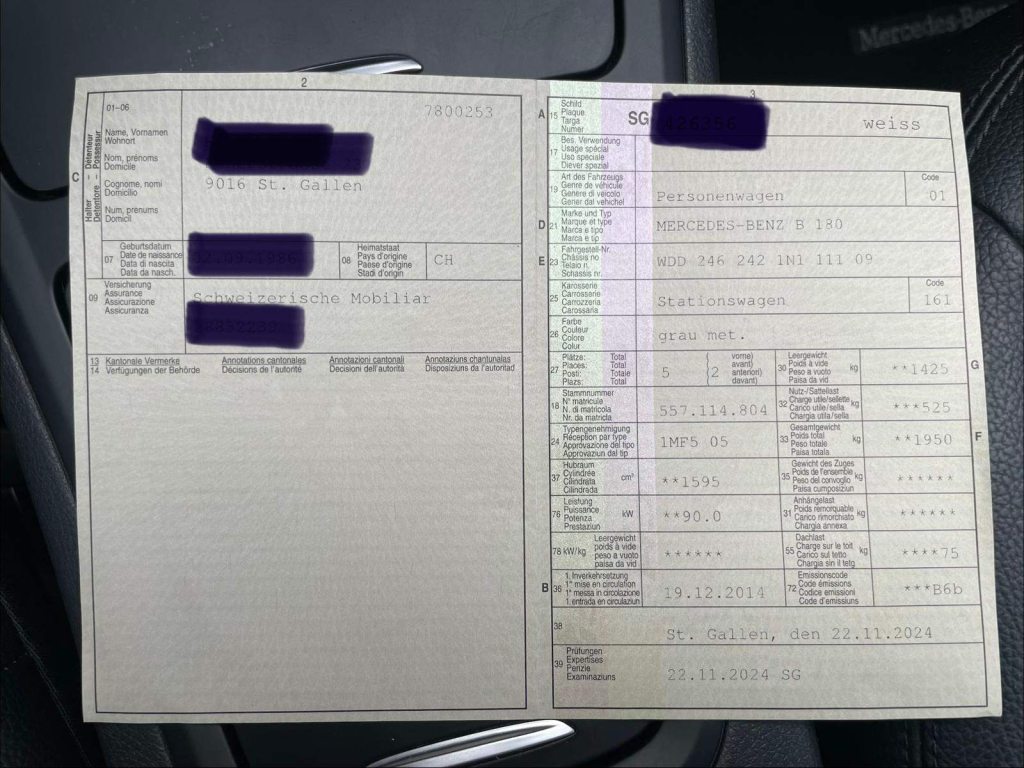 Mercedes-Benz
2
01-06
7800253
C
Halter – Détenteur
Detentore – Possessur
Name, Vornamen
Wohnort
Nom, prénoms
Domicile
Cognome, nomi
Domicilio
Num, prenums
Domicil
9016 St. Gallen
07
Geburtsdatum
Date de naissance
Data di nascita
Data da nasch.
08
Heimatstaat
Pays d'origine
Paese d'origine
Stadi d'origin
CH
09
Versicherung
Assurance
Assicurazione
Assicuranza
Schweizerische Mobiliar
13
14
Kantonale Vermerke
Verfügungen der Behörde
Annotations cantonales
Décisions de l'autorité
Annotazioni cantonali
Decisioni dell'autorità
Annotaziuns chantunalas
Disposiziuns da l'autoritad
3
A 15
Schild
Plaque
Targa
Numer
SG
weiss
17
Bes. Verwendung
Usage spécial
Uso speciale
Diever spezial
19
Art des Fahrzeugs
Genre de véhicule
Genere di veicolo
Gener dal vehichel
Personenwagen
Code
01
D 21
Marke und Typ
Marque et type
Marca e tipo
Marca e tip
MERCEDES-BENZ B 180
E 23
Fahrgestell-Nr.
Châssis no
Telaio n.
Schassis nr.
WDD 246 242 1N1 111 09
25
Karosserie
Carrosserie
Carrozzeria
Carossaria
Stationswagen
Code
161
26
Farbe
Couleur
Colore
Colur
grau met.
27
Plätze: Total
Places: Total
Posti: Totale
Plazs: Total
5
(2
vorne)
avant)
anteriori)
davant)
30
Leergewicht
Poids à vide
Peso a vuoto
Paisa da vid
kg
**1425
G
18
Stammnummer
N° matricule
N. di matricola
Nr. da matricla
557.114.804
32
Nutz-/Sattellast
Charge utile/sellette
Carico utile/sella
Chargia utila/sella
kg
***525
24
Typengenehmigung
Réception par type
Approvazione del tipo
Approvaziun dal tip
1MF5 05
33
Gesamtgewicht
Poids total
Peso totale
Paisa totala
kg
**1950
F
37
Hubraum
Cylindrée
Cilindrata
Cilindrada
cm³
**1595
35
Gewicht des Zuges
Poids de l'ensemble
Peso del convoglio
Paisa cumposiziun
kg
******
76
Leistung
Puissance
Potenza
Prestaziun
kW
**90.0
31
Anhängelast
Poids remorquable
Carico rimorchiato
Chargia annexa
kg
******
78 kW/kg
Leergewicht
poids à vide
peso a vuoto
paisa da vid
******
55
Dachlast
Charge sur le toit
Carico sul tetto
Chargia sin il tetg
kg
****75
B 36
1. Inverkehrsetzung
1re mise en circulation
1a messa in circolazione
1. entrada en circulaziun
19.12.2014
72
Emissionscode
Code émissions
Codice emissioni
Code d'emissiuns
***B6b
38
St. Gallen, den 22.11.2024
39
Prüfungen
Expertises
Perizie
Examinaziuns
22.11.2024 SG